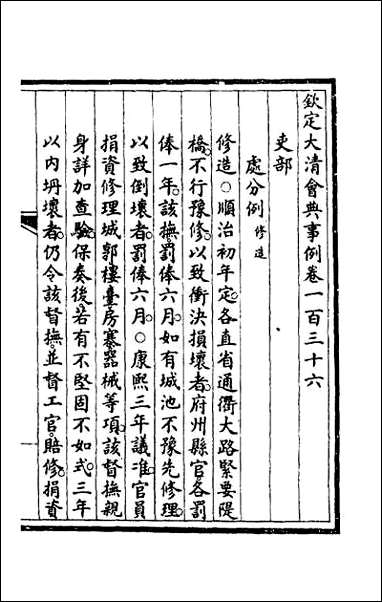 欽定大清會典事例卷一百三十六
吏部
處分例修造
修造○順治初年定。各直省通衢大路緊要隄
橋。不行豫修。以致衝決損壞者。府州縣官。各罰
俸一年。該撫罰俸六月。如有城池不豫先修理。
以致倒壞者。罰俸六月。○康熙三年議准。官員
捐資修理城郭樓臺房寨器械等項。該督撫親
身詳加查驗。保奏後。若有不堅固不如式。三年
以內坍壞者。仍令該督撫。並督工官。賠修。捐資